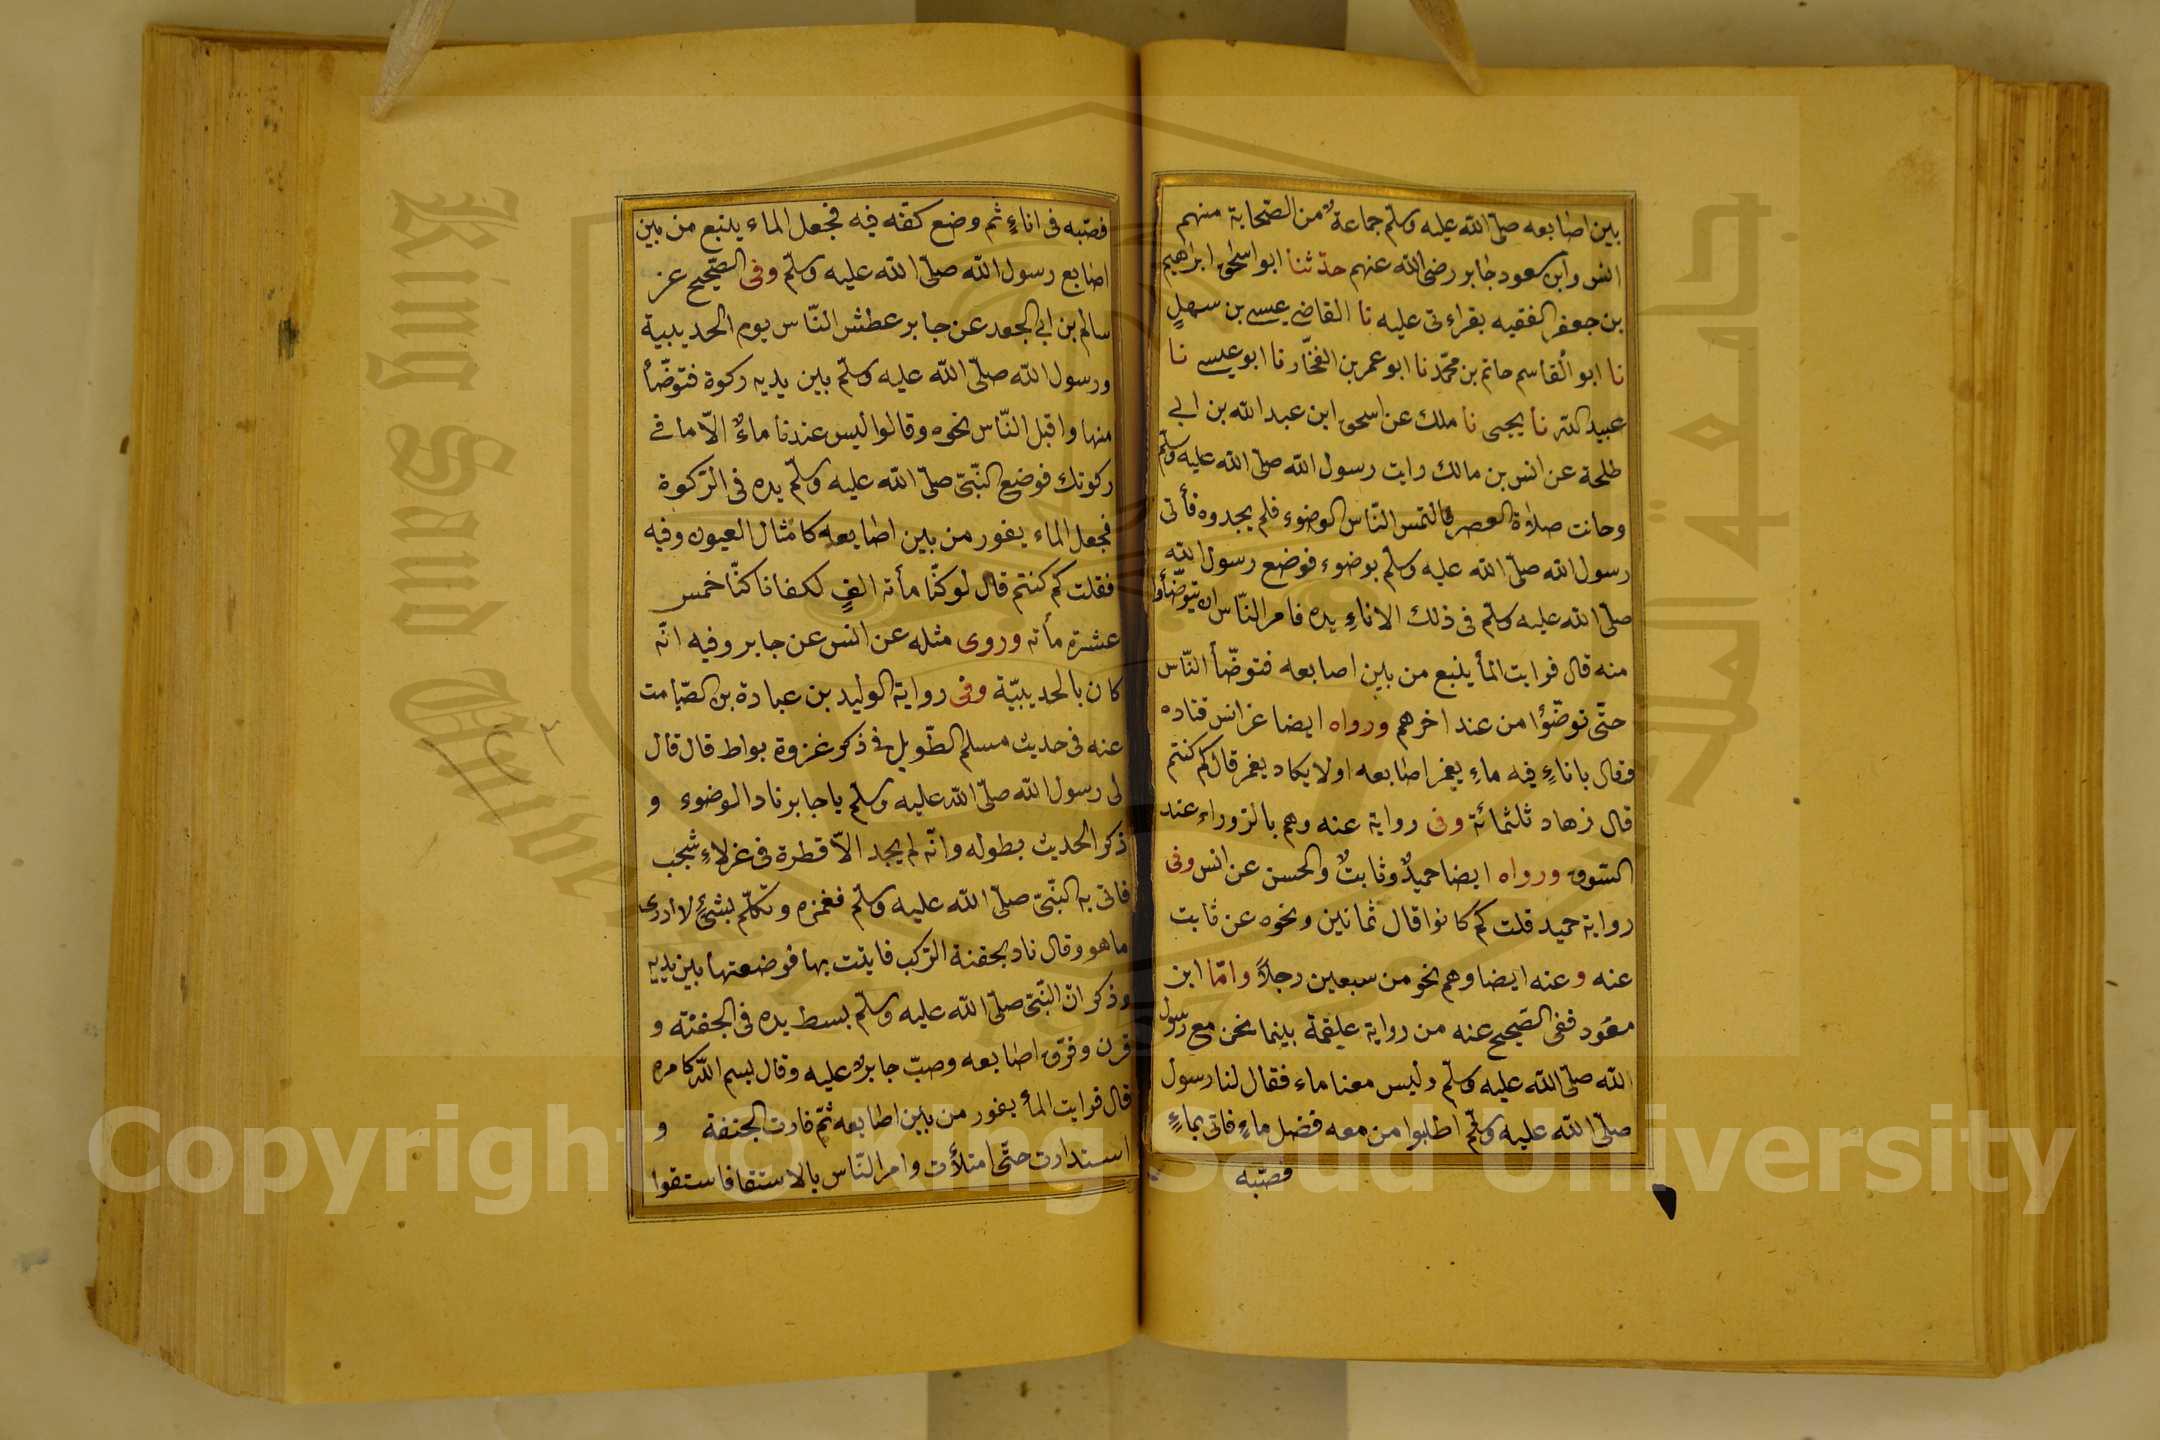 بين اصابعه صلّى الله عليه وسلّم جماعةٌ من الصّحابة منهم
انس وابن سعود جابر رضى الله عنهم حدّثنا ابو اسحق ابراهيم
بن جعفر الفقيه بقراءتى عليه نا القاضى عيسى بن سهلٍ
نا ابو القاسم حاتم بن محمّد نا ابو عمر بن الفخّار نا ابو عيسى نا
عبيد الله نا يحيى نا ملك عن اسحق ابن عبد الله بن ابى
طلحة عن انس بن مالك رايت رسول الله صلّى الله عليه وسلّم
وحانت صلاة العصر فالتمس النّاس الوضوء فلم يجدوه فأتى
رسول الله صلّى الله عليه وسلّم بوضوء فوضع رسول الله
صلّى الله عليه وسلّم فى ذلك الاناءِ يده فامر النّاس ان يتوضّأوا
منه قال فرايت المأ ينبع من بين اصابعه فتوضّأ النّاس
حتّى توضّؤا من عند اخرهم ورواه ايضا عن انس قتاده
وقال باناءٍ فيه ماءِ يغمر اصابعه اولا يكاد يغمر قال كم كنتم
قال زهاد ثلثمائة وفى رواية عنه وهم بالزوراءِ عند
السّوق ورواه ايضا حميدٌ وثابتٌ والحسن عن انس وفى
رواية حميد قلت كم كانوا قال ثمانين ونحوه عن ثابت
عنه وعنه ايضا وهم نحو من سبعين رجلاً وامّا ابن
معود ففى الصّحيح عنه من رواية عليقمة بينما نحن مع رسول
الله صلّى الله عليه وسلّم وليس معنا ماء فقال لنا رسول
صلّى الله عليه وسلّم اطلبوا من معه فضل ماءٍ فاتى بماءٍ
فصبّه
فصبّه فى اناءٍ ثم وضع كفّه فيه فجعل الماء ينبع من بين
اصابع رسول الله صلّى الله عليه وسلّم وفى الصّحيح عن
سالم بن ابى الجعد عن جابر عطش النّاس يوم الحديبية
ورسول الله صلّى الله عليه وسلّم بين يديه ركوة فتوضّأ
منها واقبل النّاس نحوه وقالوا ليس عندنا ماءٌ الاّ ما فى
ركوتك فوضع النّبىّ صلّى الله عليه وسلّم يده فى الرّكوة
فجعل الماء يفور من بين اصابعه كامثال العيون وفيه
فقلت كم كنتم قال لو كنّا مأته الفٍ لكفانا كنّا خمس
عشرة مأته وروى مثله عن انس عن جابر وفيه انّه
كان بالحديبيّة وفى رواية الوليد بن عبادة بن الصّامت
عنه فى حديث مسلم الطّويل فى ذكر غزوة بواط قال قال
لى رسول الله صلّى الله عليه وسلّم يا جابر ناد الوضوء و
ذكر الحديث بطوله وانّه لم يجد الاّ قطرة فى عزلاءِ شجب
فاتى به النّبىّ صلّى الله عليه وسلّم فغمزه وتكلّم بشئٍ لا ادرى
ما هو وقال ناد بجفنة الرّكب فايتت بها فوضعتها بين يديه
وذكر انّ النّبىّ صلّى الله عليه وسلّم بسط يده فى الجفنه و
فرن وفرّق اصابعه وصبّ جابر عليه وقال بسم الله كامره
قال فرايت المأ يفور من بين اصابعه ثمّ فارت الجنفة و
استدارت حتّى امتلأت وامر النّاس بالاستقا فاستقوا
King Saud University
جامعة الملك
Copyright © King Saud University